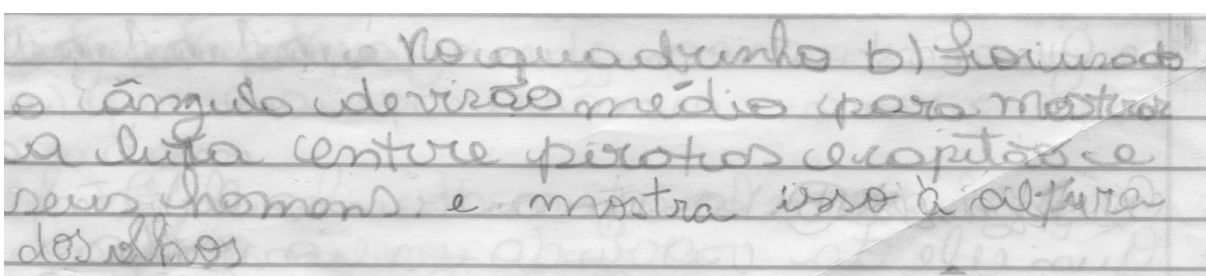 No quadrinho b) foi usado
o ângulo de visão médio para mostrar
a luta entre piratas e capitão e
seus homens. e mostra isso à altura
dos olhos